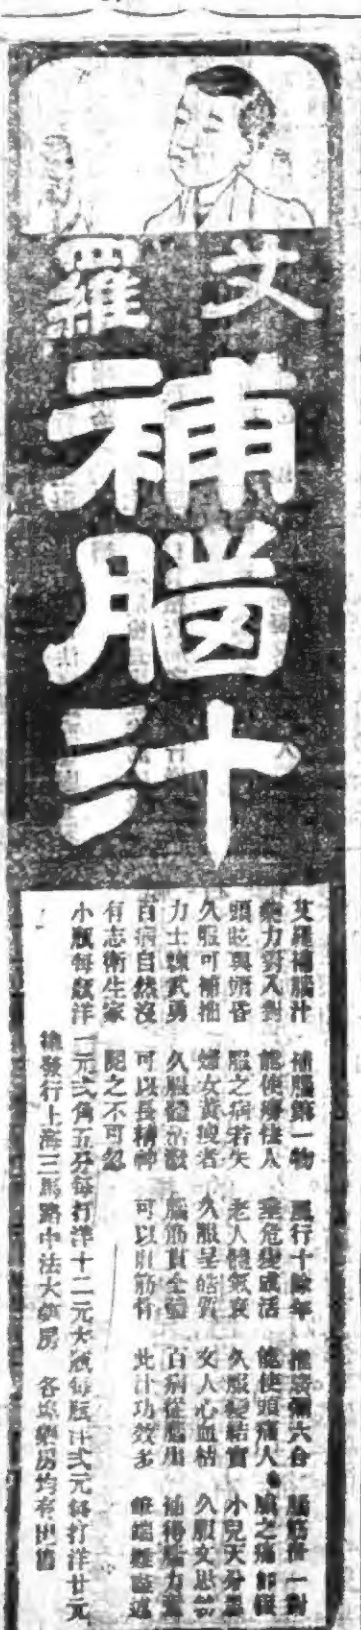 艾羅
補腦汁
艾羅補腦汁 補腦第一物 風行十餘年 六合 腦筋
藥力對人對 能使人 垂危變成活 能使頭痛人 腦之痛即
頭眩與頭昏 服之病若失 老人體氣衰 久服變結實 小兒天分愚
久服可補拙 婦女黃瘦者 久服呈皓質 女人心血枯 久服文思
力士練武勇 久服體活潑 腦筋貫全體 百病從腦出 補得腦力富
百病自然沒 可以長精神 可以壯筋骨 此汁功效多 筆端難盡述
有志衛生家 記之不可忽
小瓶每瓶洋一元弍角五分每打洋十二元大瓶每瓶洋弍元每打洋廿元
總發行上海三馬路中法大藥房 各埠藥房均有出售